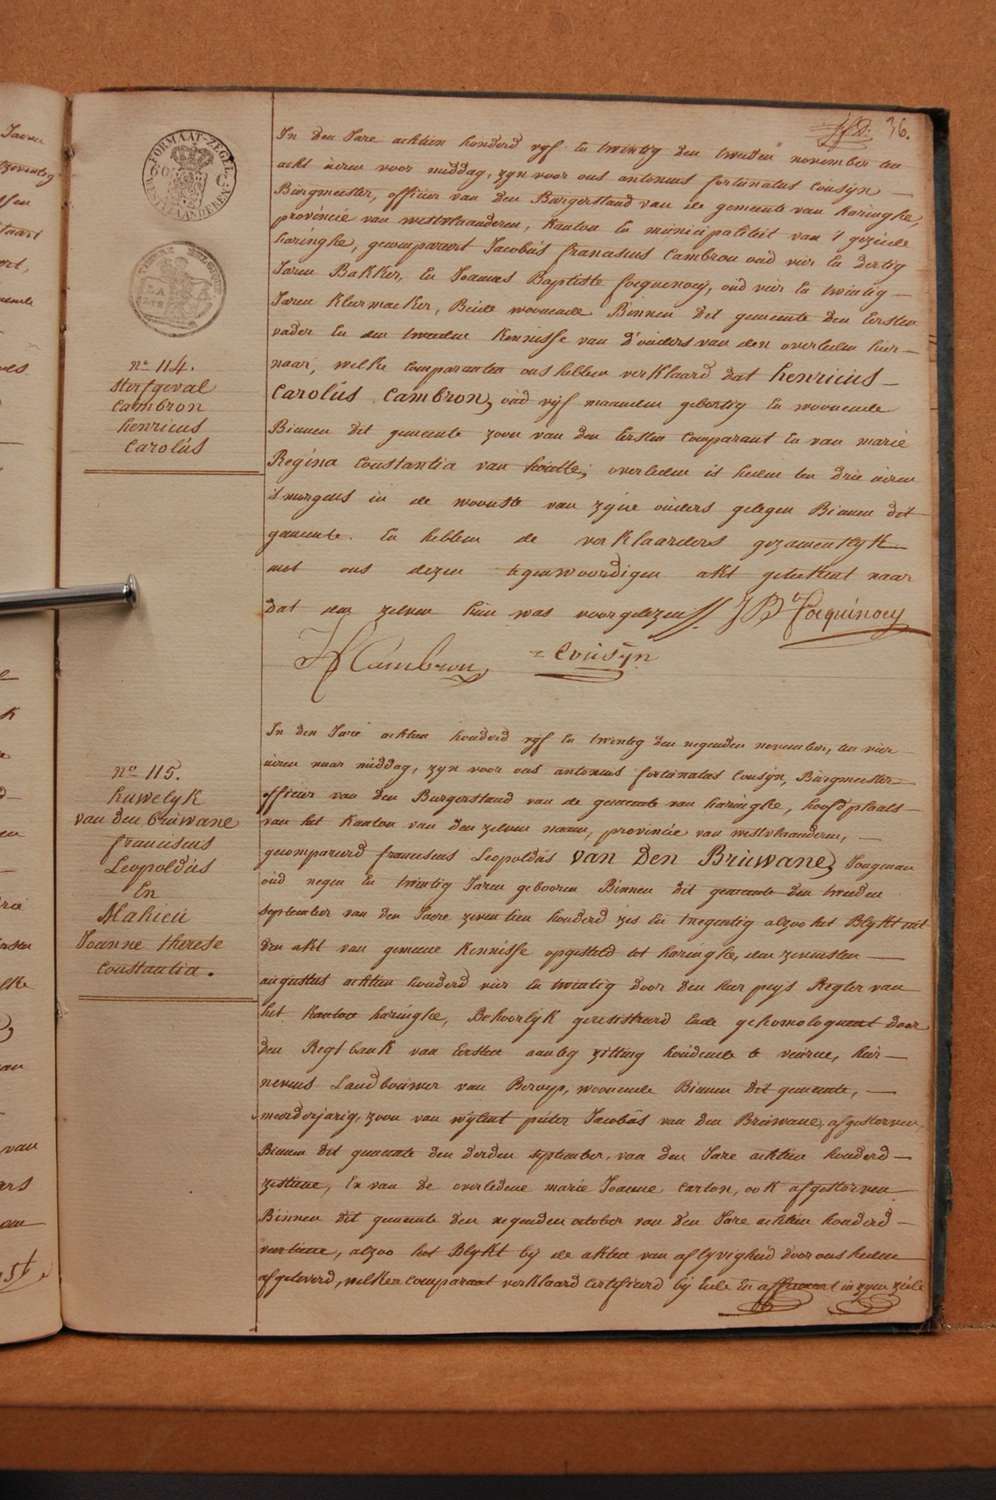 36.
FORMAAT-ZEGEL
WESTVLAANDEREN
In den Jare achtien honderd vyf En twintig den tweeden november ten
acht uren voor middag, zyn voor ons antonius fortunatus Cousyn
Burgmeister, officier van den Burgerstand van de gemeente van haringhe,
provincie van westvlaanderen, Kanton En municipaliteit van 't gezeide
haringhe, gecompareert Jacobus franciscus Cambron oud vier En dertig
Jaren Bakker, En Joannes Baptiste focquenoey, oud vier En twintig
Jaren Kleermaeker, Beide woonende Binnen dit gemeente den Eersten
vader En den tweeden Kennisse van d'ouders van den overleden hier
naar, welke comparanten ons hebben verklaard dat henricus
Carolus Cambron, oud vyf maanden gebortig En woonende
Binnen dit gemeente zoon van den Eersten Comparant En van marie
Regina Constantia van houtte, overleden is heden ten drie uren
's morgens in de woonste van zyne ouders gelegen Binnen dit
gemeente. En hebben de verklaarders gezamentlyk
met ons dezen tegenwoordigen akt geteekent naar
dat den zelven hun was voorgelezen JB Focquinoey
Cambron Cousyn
No 114.
Sterfgeval
Cambron
henricus
Carolus
In den Jare achtien honderd vyf En twintig den negenden november, ten vier
uren naar middag, zyn voor ons antonius fortunatus Cousyn, Burgmeister
officier van den Burgerstand van de gemeente van haringhe, hoofdplaats
van het Kanton van den zelven naam, provincie van westvlaanderen,
gecompareerd franciscus Leopoldus van Den Bruwane, Jongman
oud negen En twintig Jaren gebooren Binnen dit gemeente den tweeden
September van den Jaere zeventien honderd zes En tnegentig alzoo het Blykt uit
den akt van gemeene Kennisse opgesteld tot haringhe, den zevensten
augustus achtien honderd vier En twintig door den heer peys Regter van
het Kanton haringhe, Behoorlyk geregistreerd Ende gehomologueert door
den Regtbank van Eersten aanleg zitting houdende te veurne, hier
nevens Landbouwer van Beroep, woonende Binnen dit gemeente,
meerderjarig, zoon van wylent pieter Jacobus van den Bruwane, afgestorven
Binnen dit gemeente den derden september, van den Jare achtien honderd
zestiene, En van de overledene marie Joanne Carton, ook afgestorven
Binnen dit gemeente den negenden october van den Jare achtien honderd
viertiene, alzoo het Blykt bij de akten van aflyvigheid door ons heden
afgeleverd, welken comparant verklaard Certifieerd bij Eede En affirmeert in zyne ziele
No 115.
huwelyk
van den bruwane
franciscus
Leopoldus
En
Mahieu
Joanne therese
Constantia.